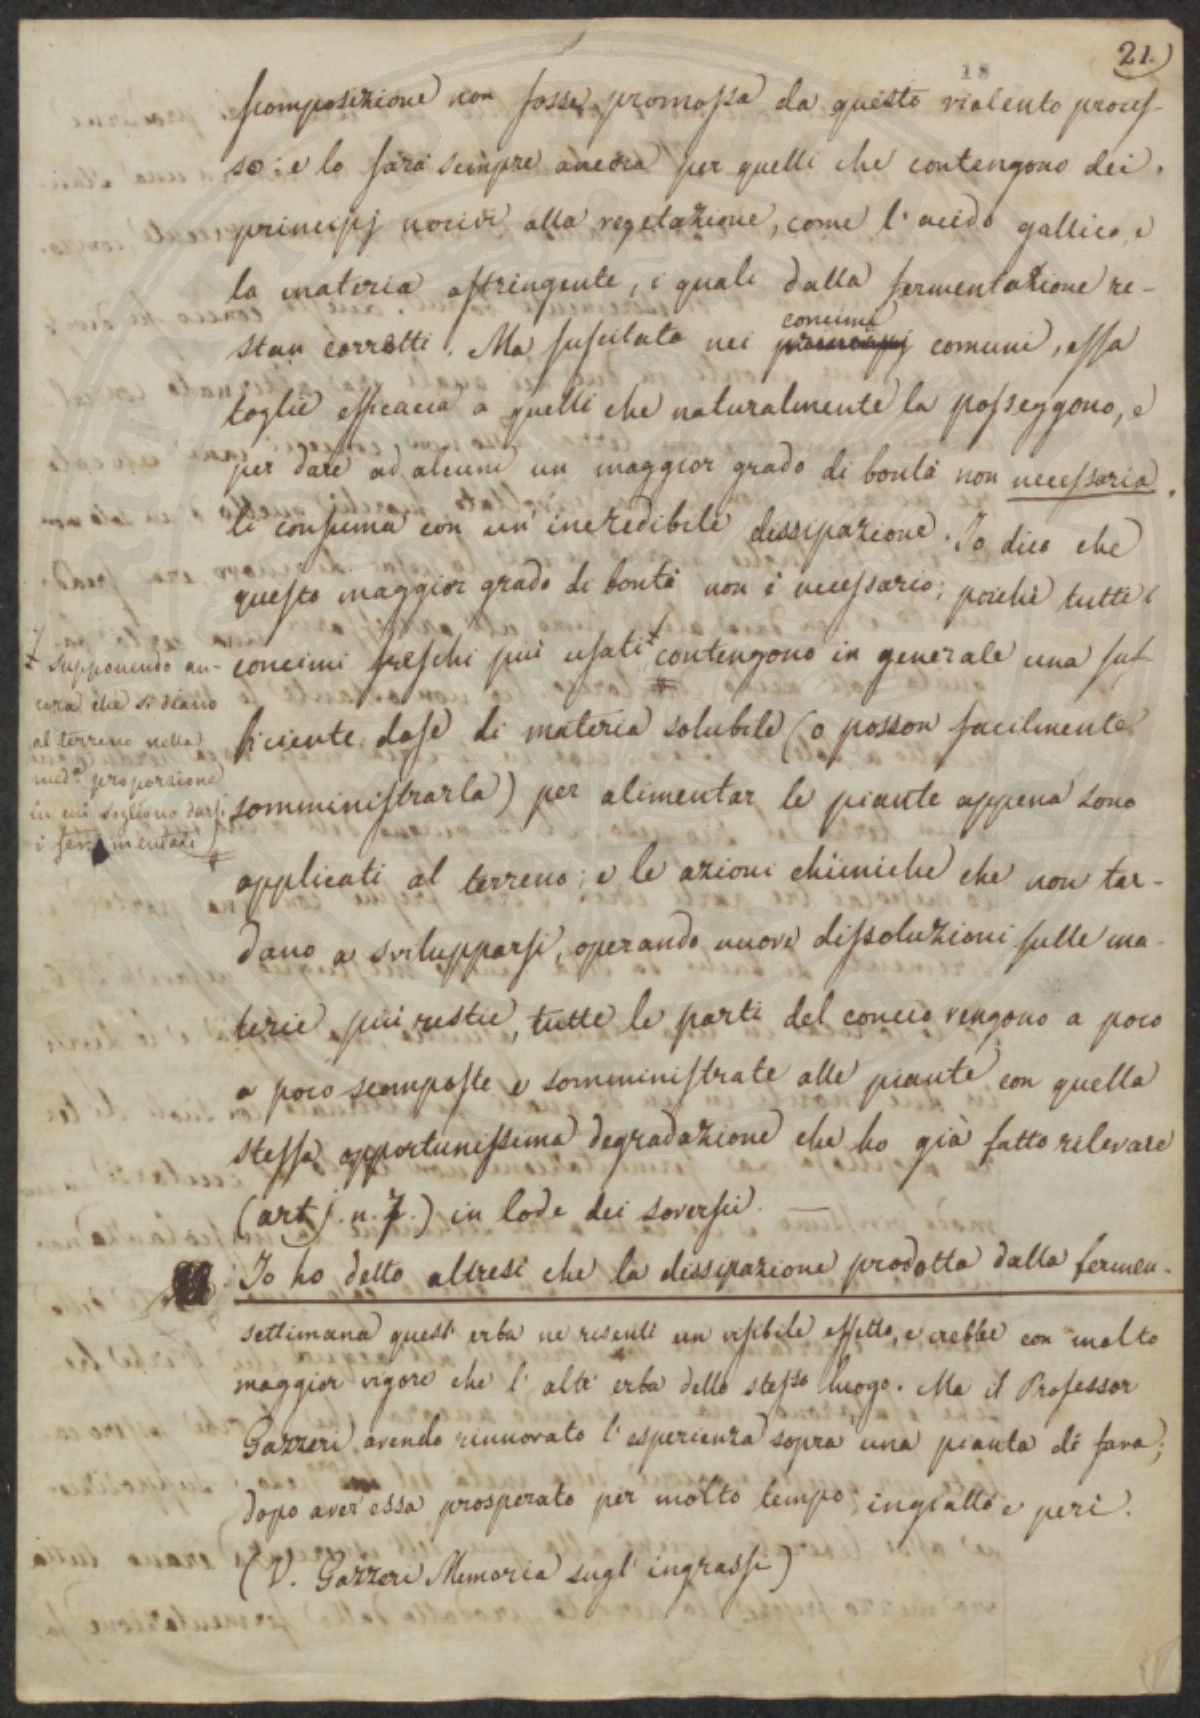 21.
18
scomposizione non fosse promossa da questo violento proces-
so: e lo sarà sempre ancora per quelli che contengono dei
principj nocivi alla vegetazione, come l'acido gallico, e
la materia astringente, i quali dalla fermentazione re-
stan corretti. Ma suscitata nei concimi comuni, essa
toglie efficacia a quelli che naturalmente la posseggono, e
per dare ad alcuni un maggior grado di bontà non necessaria
li consuma con un'incredibile dissipazione. Io dico che
questo maggior grado di bontà non è necessario; poichè tutti i
concimi freschi più usati contengono in generale una suf-
ficiente dose di materia solubile (o posson facilmente
somministrarla) per alimentar le piante appena sono
applicati al terreno; e le azioni chimiche che non tar-
dano a svilupparsi, operando nuove dissoluzioni sulle ma-
terie più restie, tutte le parti del concio vengono a poco
a poco scomposte e somministrate alle piante con quella
stessa opportunissima degradazione che ho già fatto rilevare
(art. n. 7.) in lode dei soversci. —
Io ho detto altresì che la dissipazione prodotta dalla fermen-
supponendo an-
cora che si diano
al terreno nella
med.a proporzione
in cui sogliono darsi
i fermentati
settimana quest'erba ne risentì un visibile effetto, e crebbe con molto
maggior vigore che l'altr'erba dello stesso luogo. Ma il Professor
Gazzeri avendo rinnovato l'esperienza sopra una pianta di fava;
dopo aver essa prosperato per molto tempo, ingiallò e perì.
(V. Gazzeri Memoria sugl'ingrassi)